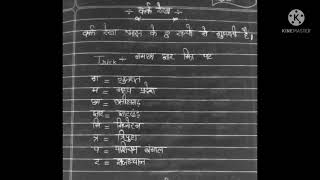 ÷ कर्क रेखा ÷
कर्क रेखा भारत के 8 राज्यो से गुजरती है।
Trick ÷ गमछा झार मित्र पर
ग = गुजरात
म = मध्य प्रदेश
छ = छत्तीसगढ़
झार = झारखंड
मि = मिजोरम
त्र = त्रिपुरा
प = पश्चिम बंगाल
र = राजस्थान
KINEMASTER